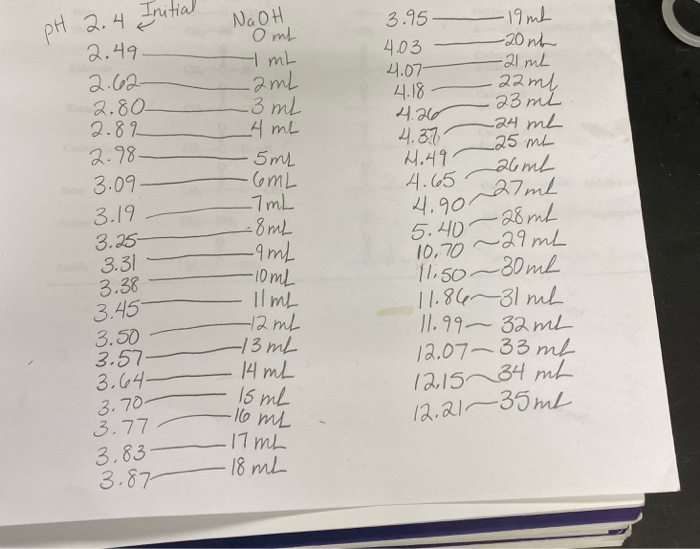 pH 2.4 Initial NaOH 0 mL
2.49 1 mL
2.62 2 mL
2.80 3 mL
2.89 4 mL
2.98 5 mL
3.09 6 mL
3.19 7 mL
3.25 8 mL
3.31 9 mL
3.38 10 mL
3.45 11 mL
3.50 12 mL
3.57 13 mL
3.64 14 mL
3.70 15 mL
3.77 16 mL
3.83 17 mL
3.87 18 mL
3.95 19 mL
4.03 20 mL
4.07 21 mL
4.18 22 mL
4.26 23 mL
4.37 24 mL
4.49 25 mL
4.65 26 mL
4.90 27 mL
5.40 28 mL
10.70 29 mL
11.50 30 mL
11.86 31 mL
11.99 32 mL
12.07 33 mL
12.15 34 mL
12.21 35 mL